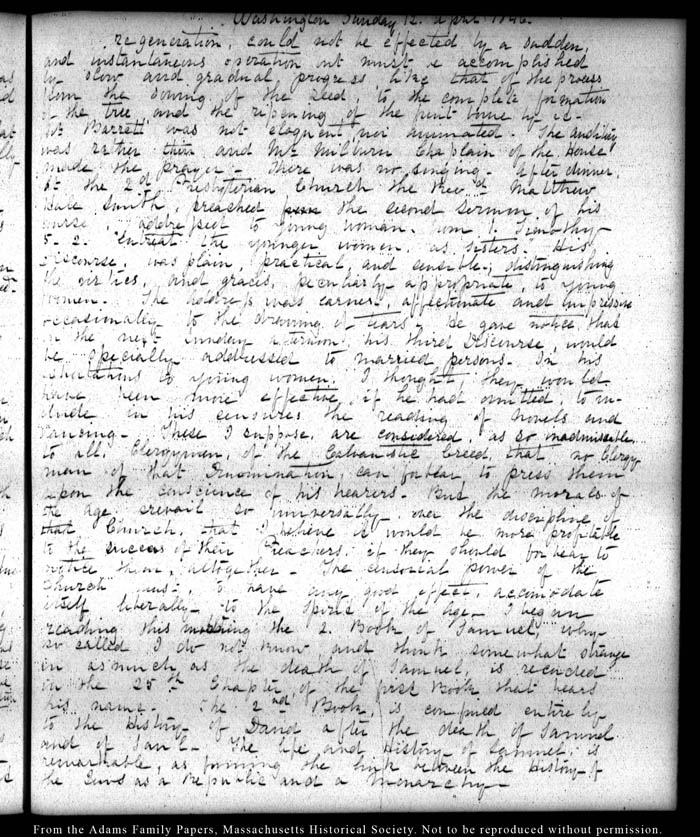 Washington Sunday 12. April 1846.
regeneration, could not be effected by a sudden,
and instantaneous operation but must be accomplished
by slow and gradual, progress like that of the process
from the sowing of the seed, to the complete formation
of the tree and the ripening of the fruit borne by it-
Mr Barrett was not eloquent nor animated. The auditory
was rather thin and Mr Milburn Chaplain of the House
made the prayer - There was no singing - After dinner,
at the 2d Presbyterian Church the Revd Matthew
Hale Smith, preached the second sermon of his
course, addressed to young women. from 1. Timothy
5. 2. Entreat the younger women, as sisters. His
discourse, was plain, practical, and sensible, distinguishing
the virtues, and graces, peculiarly appropriate, to young
women. The address was earnest, affectionate and impressive
occasionally to the drawing of tears. He gave notice, that
in the next Sunday afternoon, his third Discourse, would
be specially addressed to married persons. In his
exhortations to young women, I thought, they would
have been more effective, if he had omitted, to in-
clude in his censures the reading of novels and
dancing - These I suppose, are considered, as so inadmissible
to all Clergymen, of the Calvinistic Creed, that no Clergy
man of that Denomination, can forbear to press them
upon the conscience of his hearers. But the morals of
the age prevail so universally over the discipline of
that Church, that I believe it would be more profitable
to the success of their Preachers, if they should forbear to
notice them, altogether - The censorial power of the
Church must, to have any good effect, accomodate
itself liberally to the spirit of the age - I began
reading this morning the 2. Book of Samuel, why
so called I do not know, and think somewhat strange
in asmuch as the death of Samuel, is recorded
in the 25th Chapter of the first Book, that bears
his name - The 2nd Book, is confined entirely
to the History of David after the death of Samuel
and of Saul - The life and History of Samuel, is
remarkable, as forming the link between the History of
the Jews as a Republic and a Monarchy -
From the Adams Family Papers, Massachusetts Historical Society. Not to be reproduced without permission.